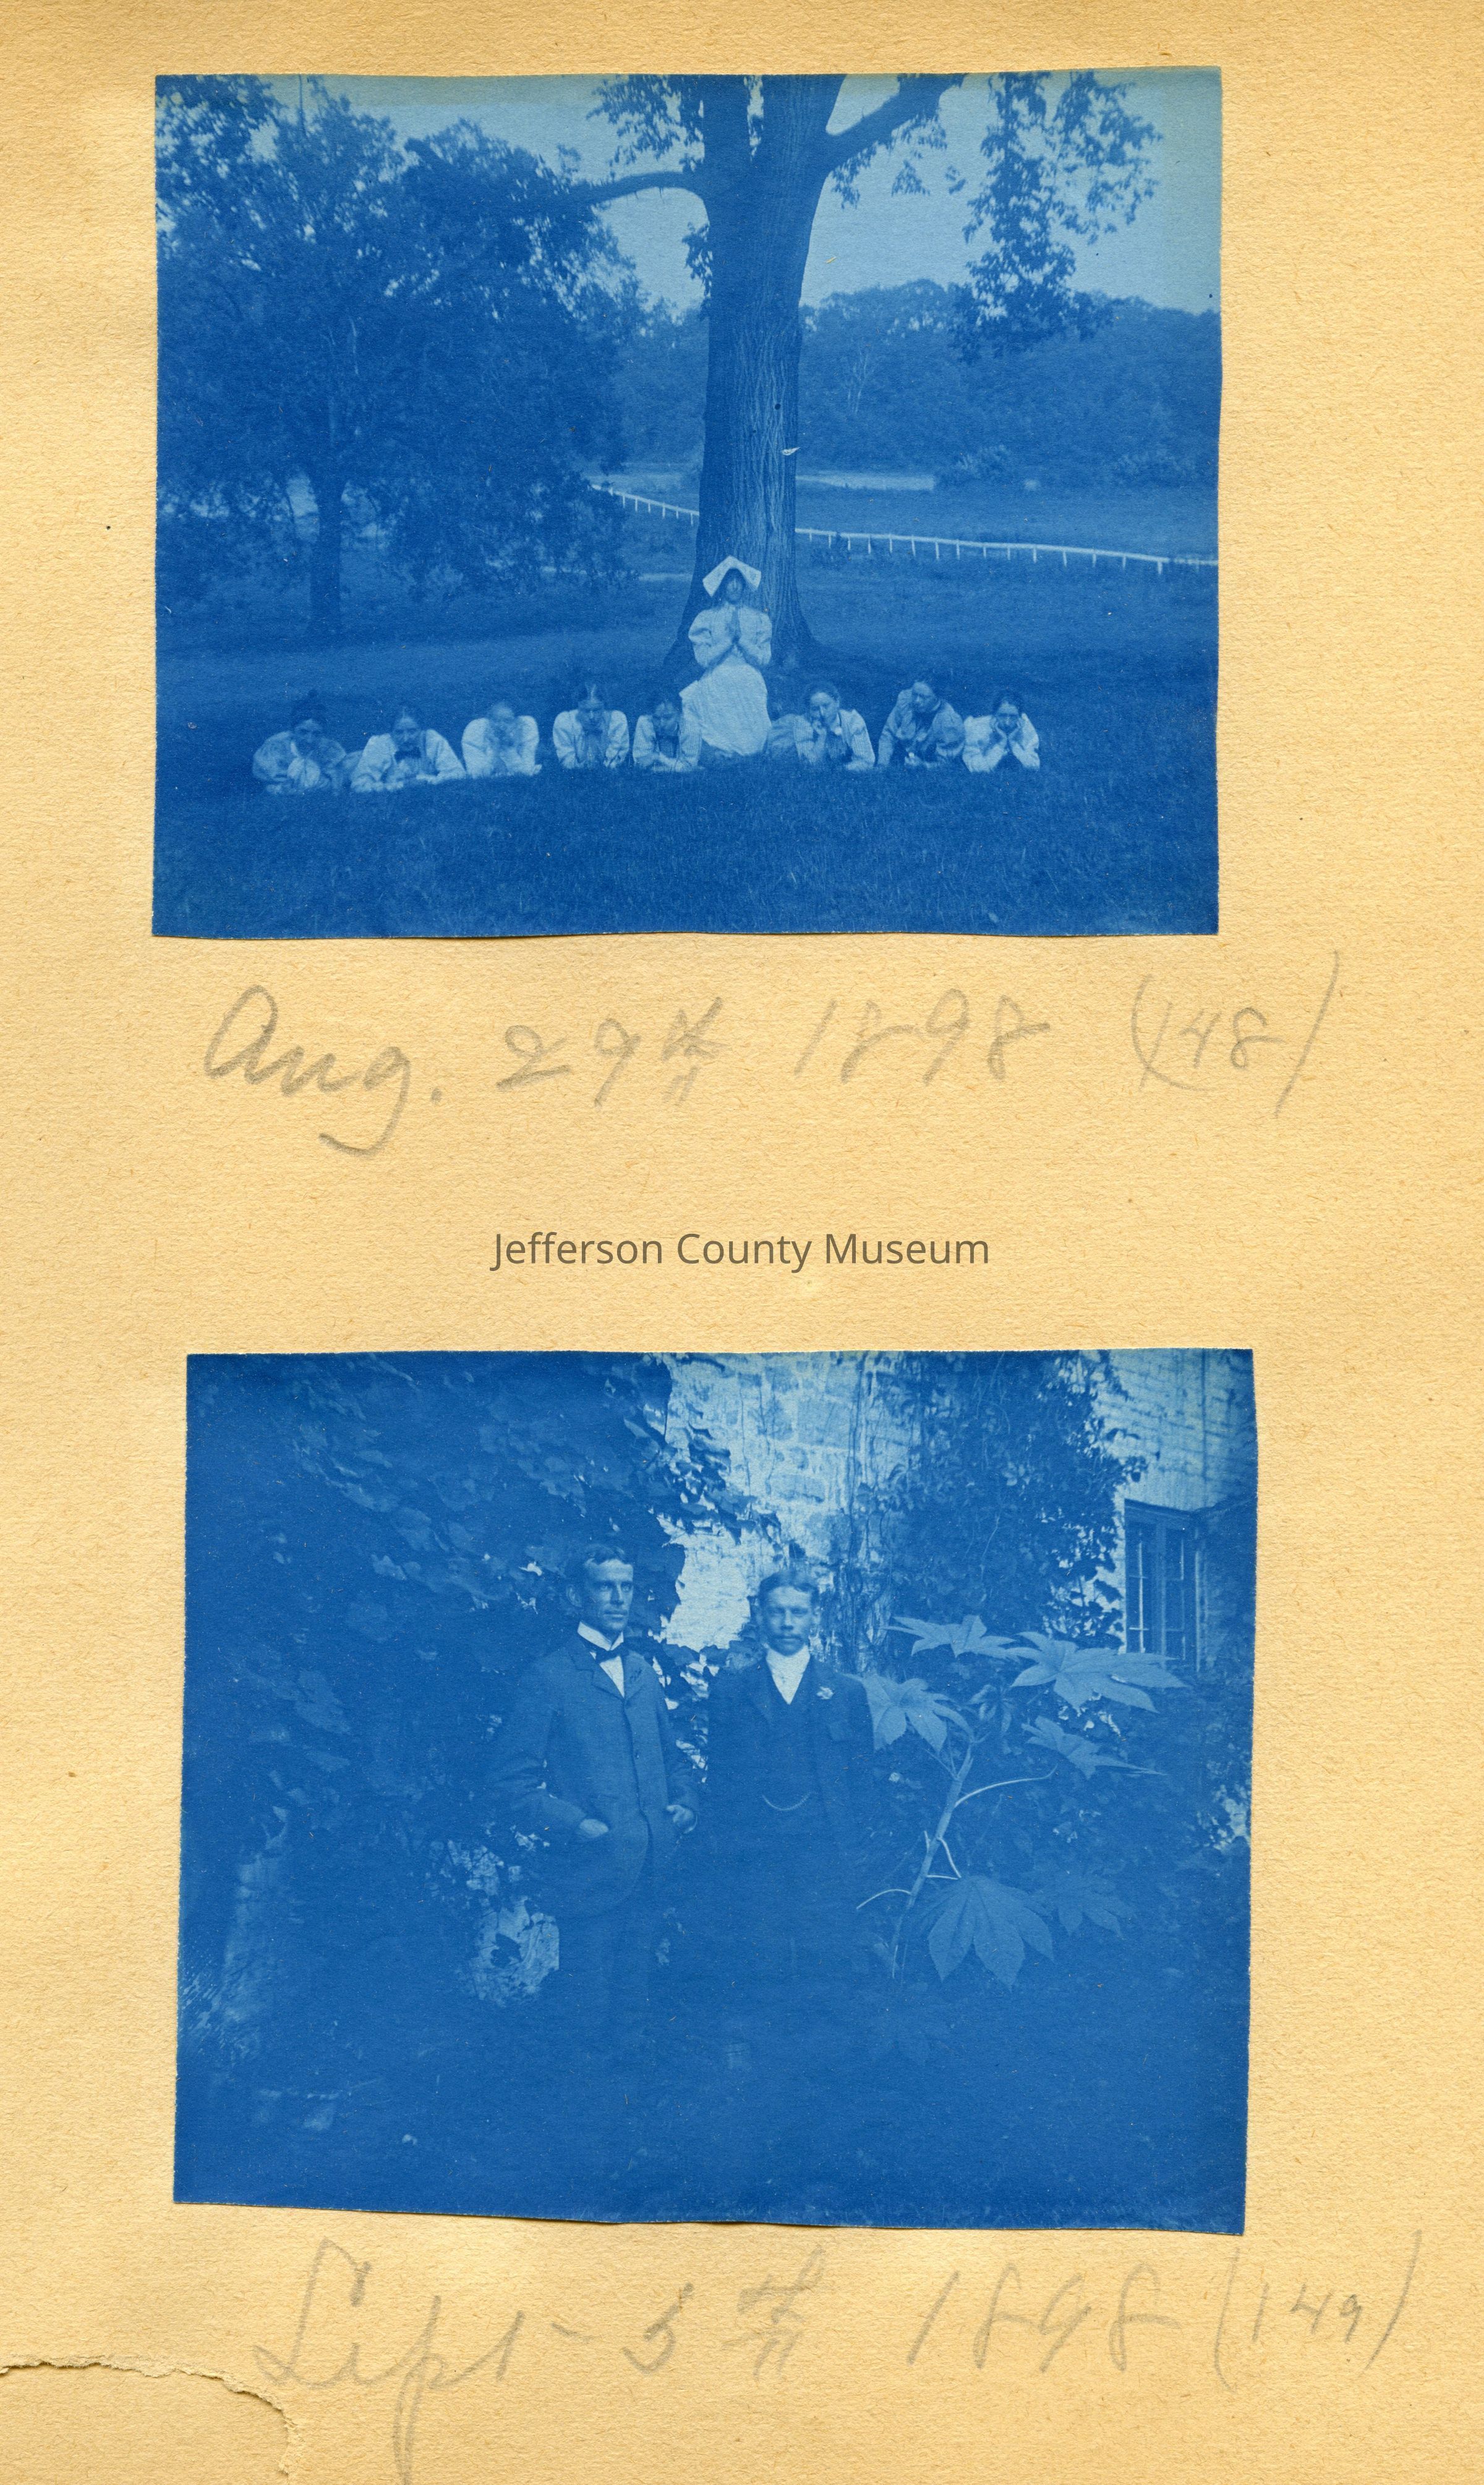 Aug. 29th 1898 (148)
Jefferson County Museum
Sept- 5th 1898 (149)